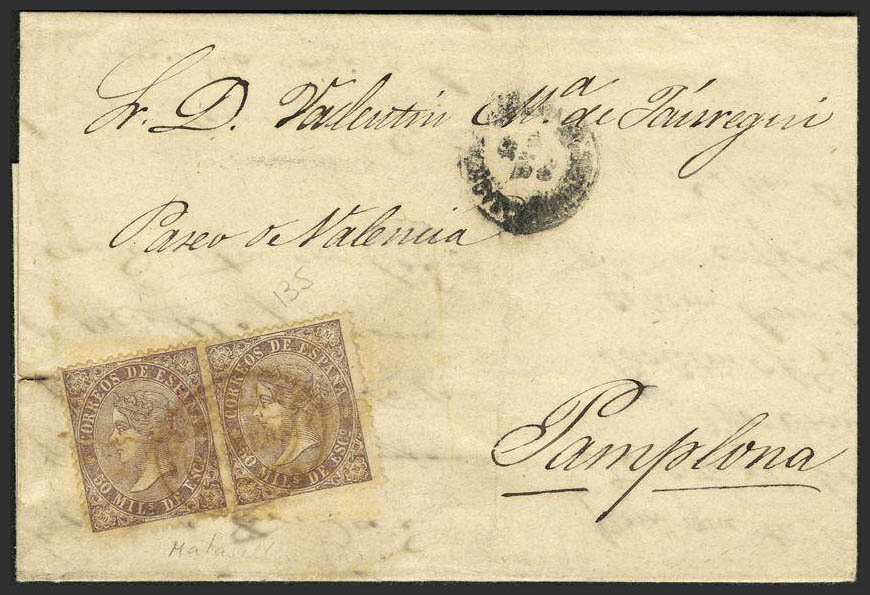 Sr. D. Valentin Mª. de Jáuregui
Paseo de Valencia
135
CORREOS DE ESPAÑA
50 MILS DE ESCO
CORREOS DE ESPAÑA
50 MILS DE ESCO
Pamplona